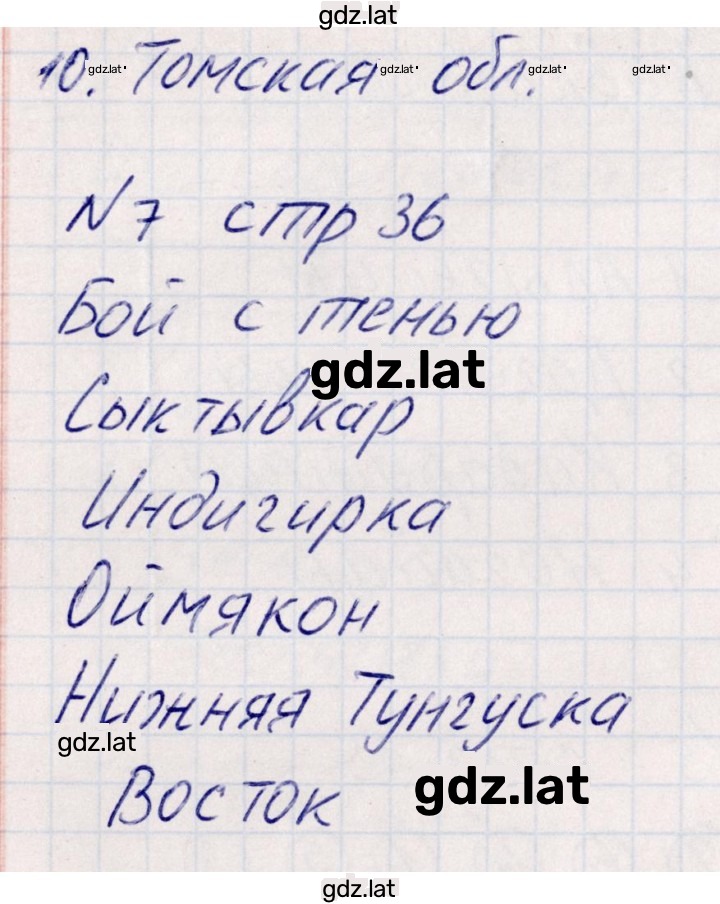 gdz.lat
10. Томская обл.
gdz.lat gdz.lat gdz.lat gdz.lat
№7 стр 36
Бой с тенью
gdz.lat
Сыктывкар
Индигирка
Оймякон
Нижняя Тунгуска
gdz.lat
Восток
gdz.lat
gdz.lat